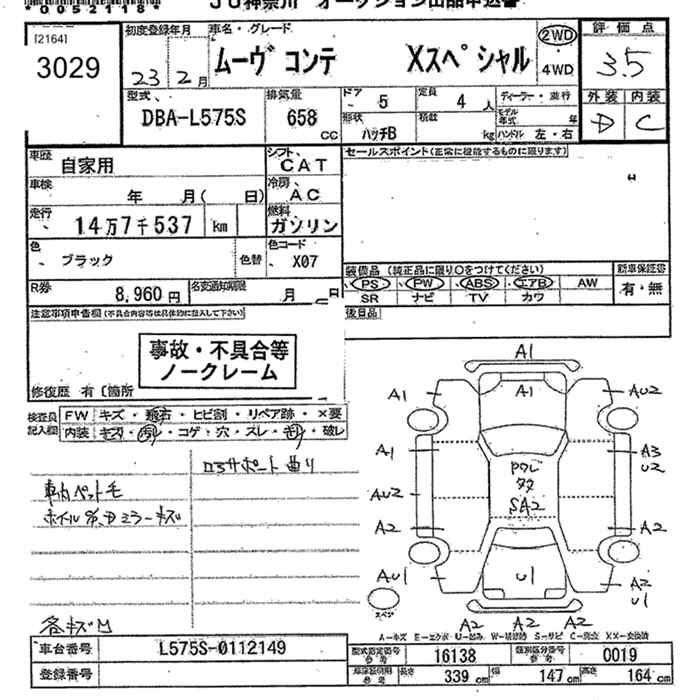 *0052118*
JU神奈川 オークション出品申込書
[2164]
3029
初度登録年月
23年2月
車名・グレード
ムーヴ コンテ Xスペシャル
2WD
4WD
評価点
3.5
外装 内装
D C
型式
DBA-L575S
排気量
658 cc
ドア
5
定員
4人
ディーラー・並行
形状
ハッチB
積載
kg
モデル年式 年
ハンドル 左・右
車歴
自家用
シフト
CAT
セールスポイント(正常に機能するものに限ります)
車検
年 月( 日)
冷房
AC
走行
14万7千537 km
燃料
ガソリン
色
ブラック
色替
色コード
X07
装備品(純正品に限り○をつけてください)
PS PW ABS エアB AW
SR ナビ TV カワ
新車保証書
有・無
R券
8,960円
名変通知期限
月 日
後日品
注意事項申告欄(不具合内容等は具体的に記入して下さい)
事故・不具合等
ノークレーム
修復歴 有〔箇所
検査員記入欄
FW キズ・飛石・ヒビ割・リペア跡・×要
内装 キズ・汚レ・コゲ・穴・スレ・キレ・破レ
ロアサポート曲り
車内ペット毛
各キズ凹
A1
A1 A1 AU2
A1 A3
U2
AU2 SA2 AU2
A2 A2
AU1 U1 A2
U1
スペア
A2 A2 A2
車台番号
L575S-0112149
登録番号
型式指定番号
参考
16138
類別区分番号
参考
0019
長さ
339 cm
幅
147 cm
高さ
164 cm